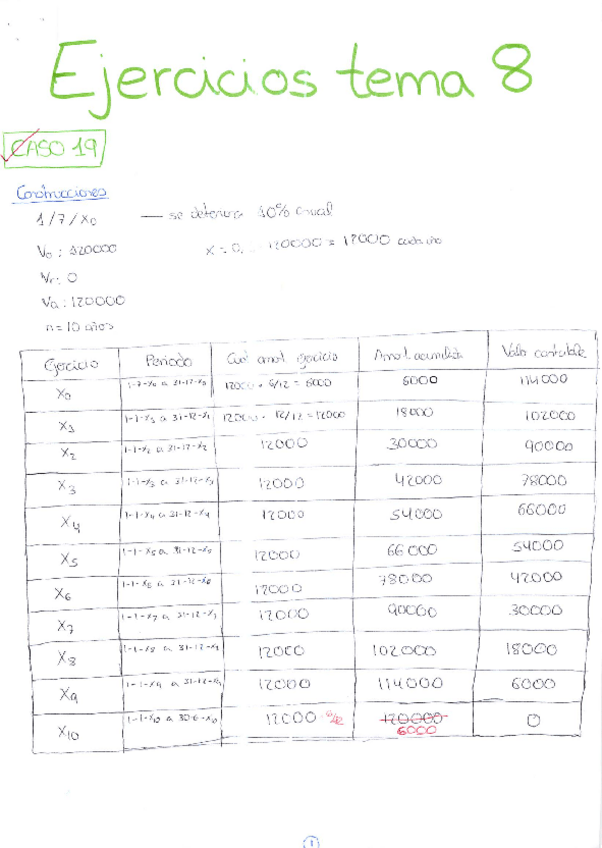 Ejercicios tema 8
CASO 19
Construcciones
1/7/X0 — se deteriora 10% anual
V0: 120000 X = 0, 120000 = 12000 cada año
Vr: 0
Va: 120000
n = 10 años
Ejercicio Periodo Cuot amort ejercicio Amort acumulada Valor contable
X0 1-7-X0 a 31-12-X0 12000 · 6/12 = 6000 6000 114000
X1 1-1-X1 a 31-12-X1 12000 · 12/12 = 12000 18000 102000
X2 1-1-X2 a 31-12-X2 12000 30000 90000
X3 1-1-X3 a 31-12-X3 12000 42000 78000
X4 1-1-X4 a 31-12-X4 12000 54000 66000
X5 1-1-X5 a 31-12-X5 12000 66000 54000
X6 1-1-X6 a 31-12-X6 12000 78000 42000
X7 1-1-X7 a 31-12-X7 12000 90000 30000
X8 1-1-X8 a 31-12-X8 12000 102000 18000
X9 1-1-X9 a 31-12-X9 12000 114000 6000
X10 1-1-X10 a 30-6-X10 12000 · 6/12 120000 0
6000
1